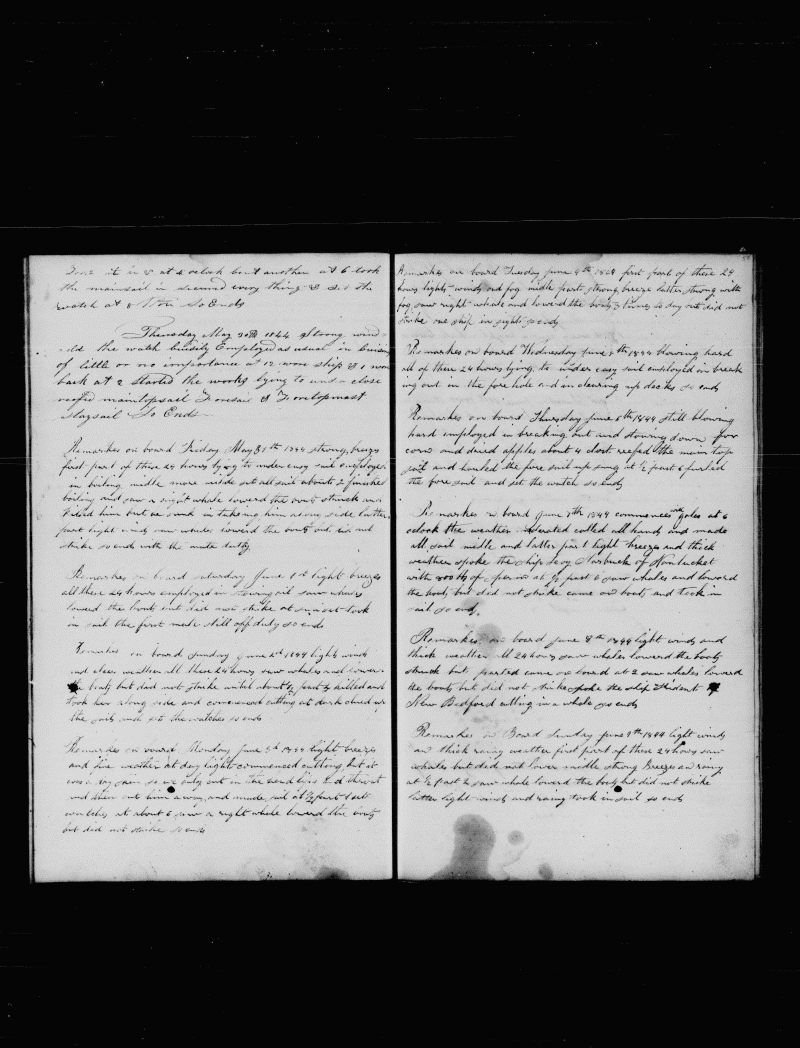 it in at oclock bent another at 6 took
the mainsail in secured every thing & set the
watch at 8 So Ends
Thursday May 30th 1844 Strong wind
the watch buisily Employed as usual in
of little or no importance at 12 wore ship
back at 2 started the works lying to under close
reefed maintopsail Foresail & Foretopmast
Staysail So Ends
Remarks on board Friday May 31th 1844 strong breeze
first part of these 24 hours lying to under easy sail employed
in boiling midle more made sail about 2 finished
boiling and saw a right whale lowered the boats struck and
killed him but he sunk in taking him along side latter
part light winds saw whales lowered the boats but did not
strike so ends with the mate duty
Remarks on board saturday June 1st light breeze
all these 24 hours employed in stowing oil saw whales
lowed the boats but did not strike at sunset took
in sail the first mate still off duty so ends
Remarks on board sunday June 2d 1844 light winds
and clear weather all these 24 hours saw whales and lowered
the boats but did not strike until about ½ past killed and
took him along side and commenced cutting at dark
the and set the watches so ends
Remarks on board Monday June 3d 1844 light breezes
and fine weather at day light commenced cutting but it
was a so we only cut in the head lips and throat
and then cut him away and made sail at ½ past 1 set
watches at about 6 saw a right whale lowered the boats
but did not strike so ends
Remarks on board Tuesday June 4th 1844 first part of these 24
hours light winds and fog midle part strong breeze latter strong with
fog saw right whale and lowered the boats times to day out did not
strike one ship in sight so ends
Remarks on board Wednesday June 5th 1844 blowing hard
all of these 24 hours lying to under easy sail employed in break
ing out in the fore hole and in clearing up decks so ends
Remarks on board Thursday June 6th 1844 still blowing
hard employed in breaking out and stowing down for
corn and dried apples about 4 close reefed the main top
sail and hauled the fore sail up snug at ½ past 6 furled
the fore sail and set the watch so ends
Remarks on board June 7th 1844 commences with gales at 6
oclock the weather moderated called all hands and made
all sail midle and latter part light breezes and thick
weather spoke the ship Levy Starbuck of Nantucket
with 400 bbls of sperm at ½ past 6 saw whales and lowered
the boats but did not strike came on board and took in
sail so ends
Remarks on board June 8th 1844 light winds and
thick weather all 24 hours saw whales lowered the boats
struck but parted came on board at 2 saw whales lowered
the boats but did not strike spoke the ship Trident of
New Bedford cutting in a whale so ends
Remarks on Board Sunday June 9th 1844 light winds
an thick rainy weather first part of these 24 hours saw
whales but did not lower midle strong Breezes an rainy
at ½ past 2 saw whale lowerd the boats but did not strike
latter light winds and rainy took in sail so ends